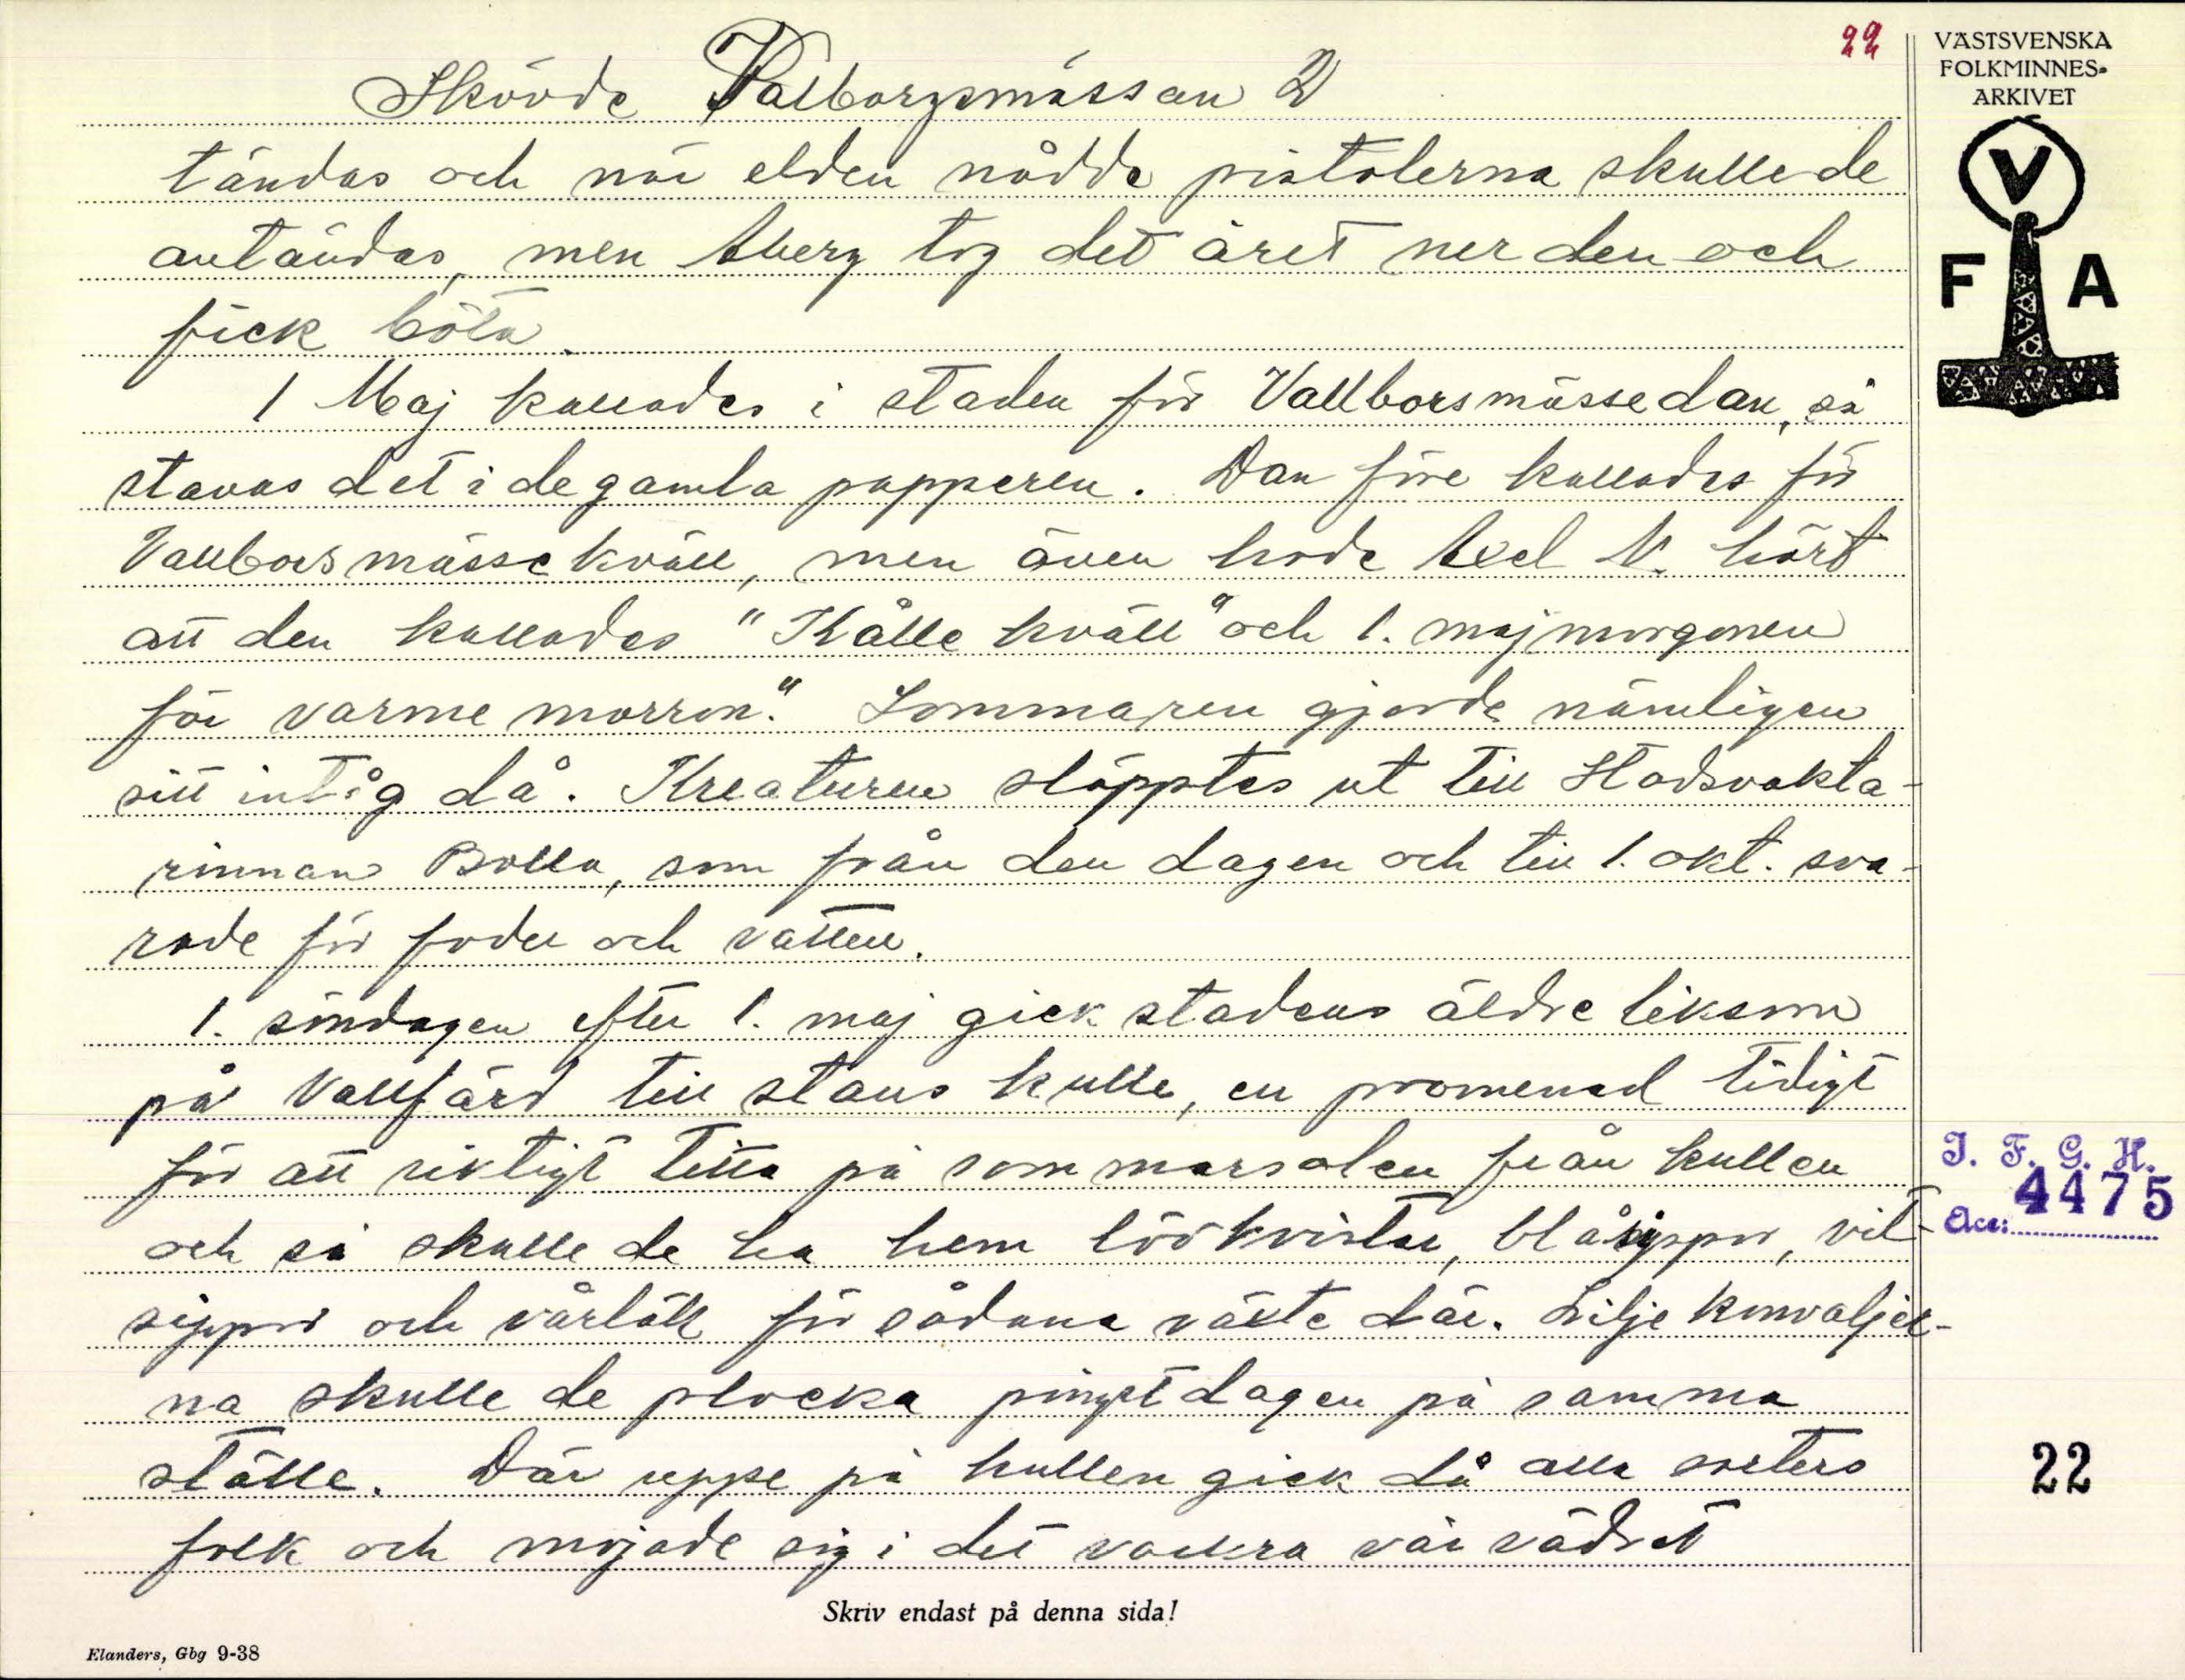 22
VÄSTSVENSKA
FOLKMINNES-
ARKIVET
V
F A
Skövde Valborgsmässan 2
tändas och när elden nådde pistolerna skulle de
antändas, men Åberg tog det året ner den och
fick böta.
1 Maj kallades i staden för Vallborsmässedan, så
stavas det i de gamla papperen. Dan före kallades för
Vallborsmässekväll, men även hade Axel N. hört
att den kallades "Kålle kväll" och 1. maj morgonen
för varme morron." Sommaren gjorde nämligen
sitt intåg då. Kreaturen släpptes ut till Stadsvakta-
rinnan Bolla, som från den dagen och till 1. okt. sva-
rade för foder och vatten.
1. söndagen efter 1. maj gick stadens äldre liksom
på Vallfärd till stans kulle, en promenad tidigt
för att riktigt titta på sommarsolen från kullen
och så skulle de ha hem lövkvistar, blåsippor, vit-
sippor och vårlökk för sådana växte där. Lilje konvaljer-
na skulle de plocka pingstdagen på samma
ställe. Där uppe på kullen gick då alla sorters
folk och mojade sig i det vackra vår vädret
I. F. G. H.
Acc: 4475
22
Skriv endast på denna sida!
Elanders, Gbg 9-38